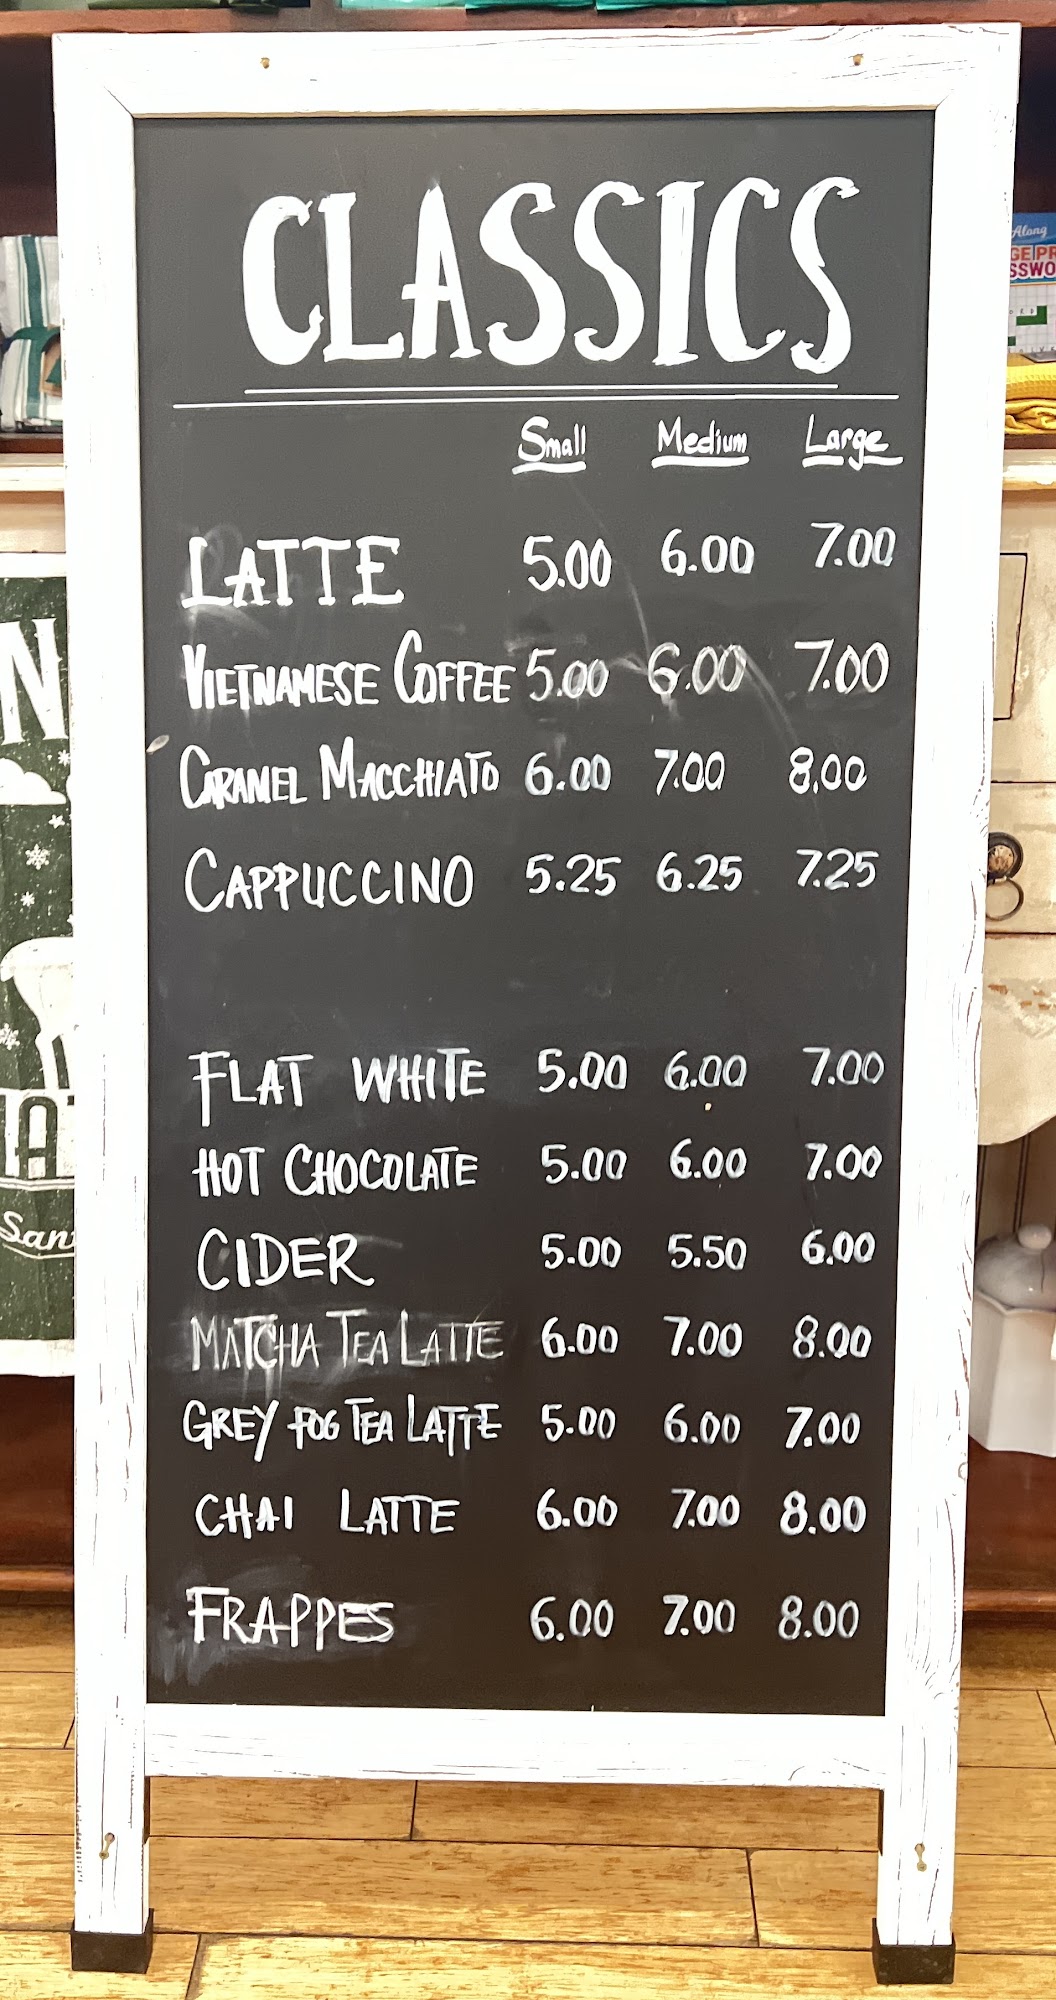 CLASSICS
Small Medium Large
LATTE 5.00 6.00 7.00
VIETNAMESE COFFEE 5.00 6.00 7.00
CARAMEL MACCHIATO 6.00 7.00 8.00
CAPPUCCINO 5.25 6.25 7.25
FLAT WHITE 5.00 6.00 7.00
HOT CHOCOLATE 5.00 6.00 7.00
CIDER 5.00 5.50 6.00
MATCHA TEA LATTE 6.00 7.00 8.00
GREY FOG TEA LATTE 5.00 6.00 7.00
CHAI LATTE 6.00 7.00 8.00
FRAPPES 6.00 7.00 8.00
Along